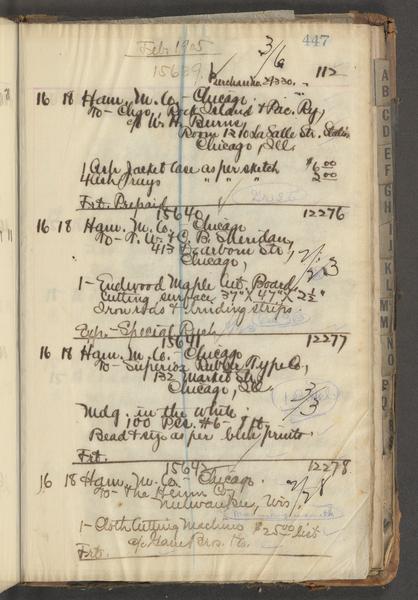 Feb 1905
447
3/6
15639
112
Purchase No. 24330
16 18 Ham. M. Co. - Chicago.
To - Chgo, Rock Island & Pac. Ry,
c/o W. H. Burns,
Room 1210 La Salle Str. Station
Chicago, Ill.
1 Ash Jacket Case as per sketch $6.00
4 Lich Trays " " " 2.00
Frt. Prepaid
15640 12276
16 18 Ham. M. Co. - Chicago
To - T. W. & C. B. Sheridan,
413 Dearborn Str,
Chicago,
2/23
1 - Endwood Maple Cut. Board,
Cutting surface 37" X 47" X 2½"
Iron rods & binding strips.
Exp. - Special Rush
15641 12277
16 18 Ham. M. Co. - Chicago
To - Superior Rubber Type Co,
132 Market Str,
Chicago, Ill.
3/3
Mdg. in the white:
100 Pcs. #6 - 7 ft.
Bead & size as per blue prints.
Frt.
15642 12278
16 18 Ham. M. Co. - Chicago.
To - The Heinn Co.
Milwaukee, Wis.
2/28
1 - Cloth Cutting Machine $25.00 list
c/o Gane Bros. & Co.
Frt.
A
B
C
D
E
F
G
H
I
J
K
L
M
M
N
O
P
Q
R
S